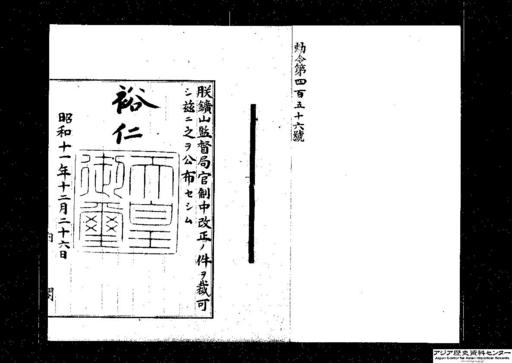 勅令第四百五十六號
朕鑛山監督局官制中改正ノ件ヲ裁可
シ茲ニ之ヲ公布セシム
裕仁
天皇
御璽
昭和十一年十二月二十六日
内閣
アジア歴史資料センター
Japan Center for Asian Historical Records